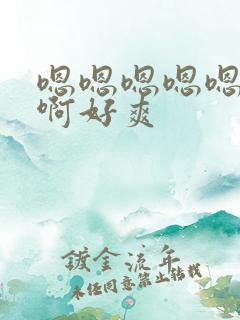 嗯嗯嗯嗯嗯
啊好爽
镀金流年
未经同意禁止转载